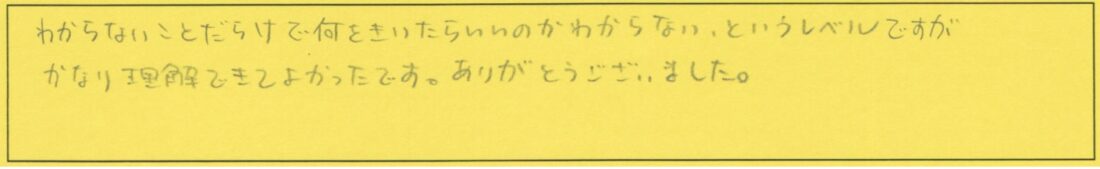 わからないことだらけで何をきいたらいいのかわからない、というレベルですが
かなり理解できてよかったです。ありがとうございました。